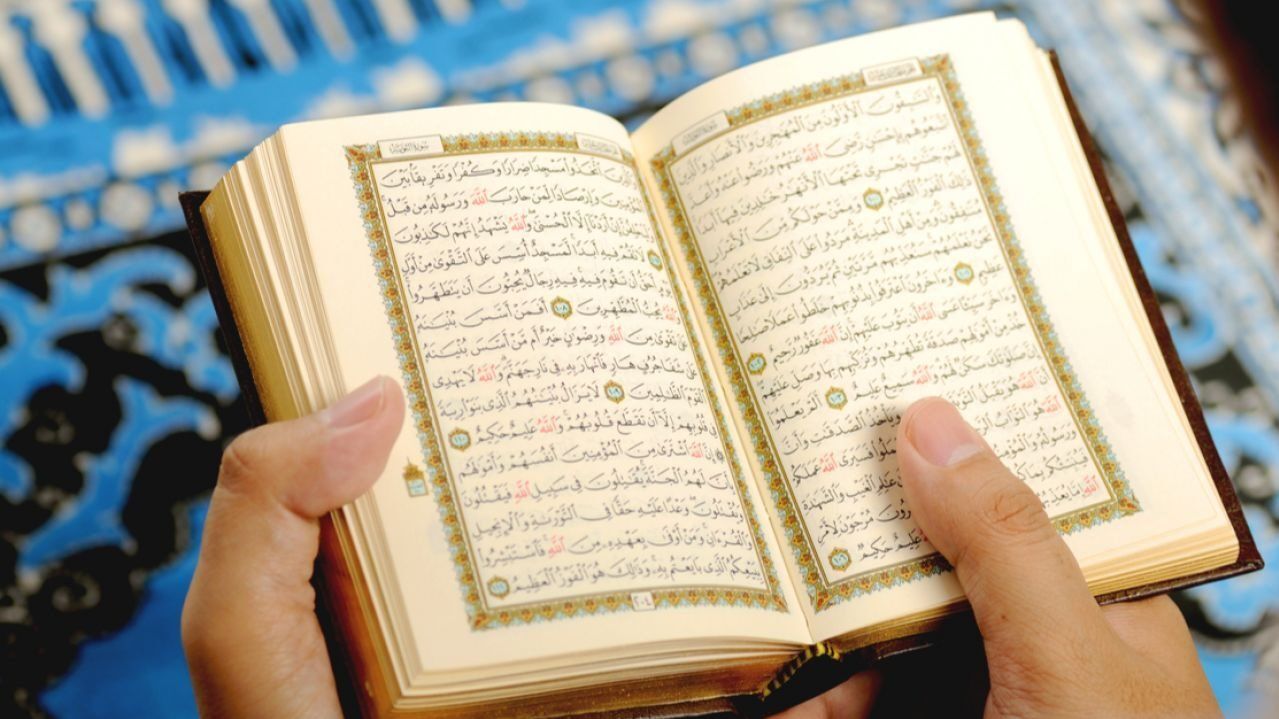 سُورَةُ التَّوْبَةِ
وَٱلسَّٰبِقُونَ ٱلْأَوَّلُونَ مِنَ ٱلْمُهَٰجِرِينَ وَٱلْأَنصَارِ وَٱلَّذِينَ
ٱتَّبَعُوهُم بِإِحْسَٰنٍ رَّضِىَ ٱللَّهُ عَنْهُمْ وَرَضُوا۟ عَنْهُ وَأَعَدَّ
لَهُمْ جَنَّٰتٍ تَجْرِى تَحْتَهَا ٱلْأَنْهَٰرُ خَٰلِدِينَ فِيهَآ أَبَدًا
ذَٰلِكَ ٱلْفَوْزُ ٱلْعَظِيمُ ١٠٠ وَمِمَّنْ حَوْلَكُم مِّنَ ٱلْأَعْرَابِ
مُنَٰفِقُونَ وَمِنْ أَهْلِ ٱلْمَدِينَةِ مَرَدُوا۟ عَلَى ٱلنِّفَاقِ لَا تَعْلَمُهُمْ
نَحْنُ نَعْلَمُهُمْ سَنُعَذِّبُهُم مَّرَّتَيْنِ ثُمَّ يُرَدُّونَ إِلَىٰ عَذَابٍ
عَظِيمٍ ١٠١ وَءَاخَرُونَ ٱعْتَرَفُوا۟ بِذُنُوبِهِمْ خَلَطُوا۟ عَمَلًا صَٰلِحًا
وَءَاخَرَ سَيِّئًا عَسَى ٱللَّهُ أَن يَتُوبَ عَلَيْهِمْ إِنَّ ٱللَّهَ غَفُورٌ رَّحِيمٌ ١٠٢
خُذْ مِنْ أَمْوَٰلِهِمْ صَدَقَةً تُطَهِّرُهُمْ وَتُزَكِّيهِم بِهَا وَصَلِّ عَلَيْهِمْ
إِنَّ صَلَوٰتَكَ سَكَنٌ لَّهُمْ وَٱللَّهُ سَمِيعٌ عَلِيمٌ ١٠٣ أَلَمْ يَعْلَمُوٓا۟
أَنَّ ٱللَّهَ هُوَ يَقْبَلُ ٱلتَّوْبَةَ ٱلصَّدَقَٰتِ وَأَنَّ
ٱللَّهَ هُوَ ٱلتَّوَّابُ فَسَيَرَى ٱللَّهُ عَمَلَكُمْ
وَرَسُولُهُۥ وَٱلْمُؤْمِنُونَ ٱلْغَيْبِ وَٱلشَّهَٰدَةِ
فَيُنَبِّئُكُم بِمَا مُرْجَوْنَ لِأَمْرِ
ٱللَّهِ إِمَّا يُعَذِّبُهُمْ عَلِيمٌ حَكِيمٌ ١٠٦
سُورَةُ التَّوْبَةِ
ٱتَّخَذُوا۟ مَسْجِدًا ضِرَارًا وَكُفْرًا وَتَفْرِيقًۢا بَيْنَ
ٱلْمُؤْمِنِينَ وَإِرْصَادًا لِّمَنْ حَارَبَ ٱللَّهَ وَرَسُولَهُۥ مِن قَبْلُ
إِنْ أَرَدْنَآ إِلَّا ٱلْحُسْنَىٰ وَٱللَّهُ يَشْهَدُ إِنَّهُمْ لَكَٰذِبُونَ
١٠٧ لَا تَقُمْ فِيهِ أَبَدًا لَّمَسْجِدٌ أُسِّسَ عَلَى ٱلتَّقْوَىٰ مِنْ أَوَّلِ
أَحَقُّ أَن تَقُومَ فِيهِ فِيهِ رِجَالٌ يُحِبُّونَ أَن يَتَطَهَّرُوا۟
وَٱللَّهُ يُحِبُّ ٱلْمُطَّهِّرِينَ ١٠٨ أَفَمَنْ أَسَّسَ بُنْيَٰنَهُۥ
عَلَىٰ تَقْوَىٰ مِنَ ٱللَّهِ وَرِضْوَٰنٍ خَيْرٌ أَم مَّنْ أَسَّسَ بُنْيَٰنَهُۥ
عَلَىٰ شَفَا جُرُفٍ هَارٍ فَٱنْهَارَ بِهِۦ فِى نَارِ جَهَنَّمَ وَٱللَّهُ لَا يَهْدِى
ٱلْقَوْمَ ٱلظَّٰلِمِينَ ١٠٩ لَا يَزَالُ بُنْيَٰنُهُمُ ٱلَّذِى بَنَوْا۟ رِيبَةً
فِى قُلُوبِهِمْ إِلَّآ أَن تَقَطَّعَ قُلُوبُهُمْ وَٱللَّهُ عَلِيمٌ حَكِيمٌ ١١٠
إِنَّ ٱللَّهَ ٱشْتَرَىٰ مِنَ ٱلْمُؤْمِنِينَ أَنفُسَهُمْ وَأَمْوَٰلَهُم
بِأَنَّ لَهُمُ ٱلْجَنَّةَ يُقَٰتِلُونَ فِى سَبِيلِ ٱللَّهِ فَيَقْتُلُونَ
وَيُقْتَلُونَ وَعْدًا عَلَيْهِ حَقًّا فِى ٱلتَّوْرَىٰةِ وَٱلْإِنجِيلِ
وَٱلْقُرْءَانِ وَمَنْ أَوْفَىٰ بِعَهْدِهِۦ مِنَ ٱللَّهِ فَٱسْتَبْشِرُوا۟
بِبَيْعِكُمُ ٱلَّذِى بَايَعْتُم بِهِۦ وَذَٰلِكَ هُوَ ٱلْفَوْزُ ٱلْعَظِيمُ ١١١
٢٠٤